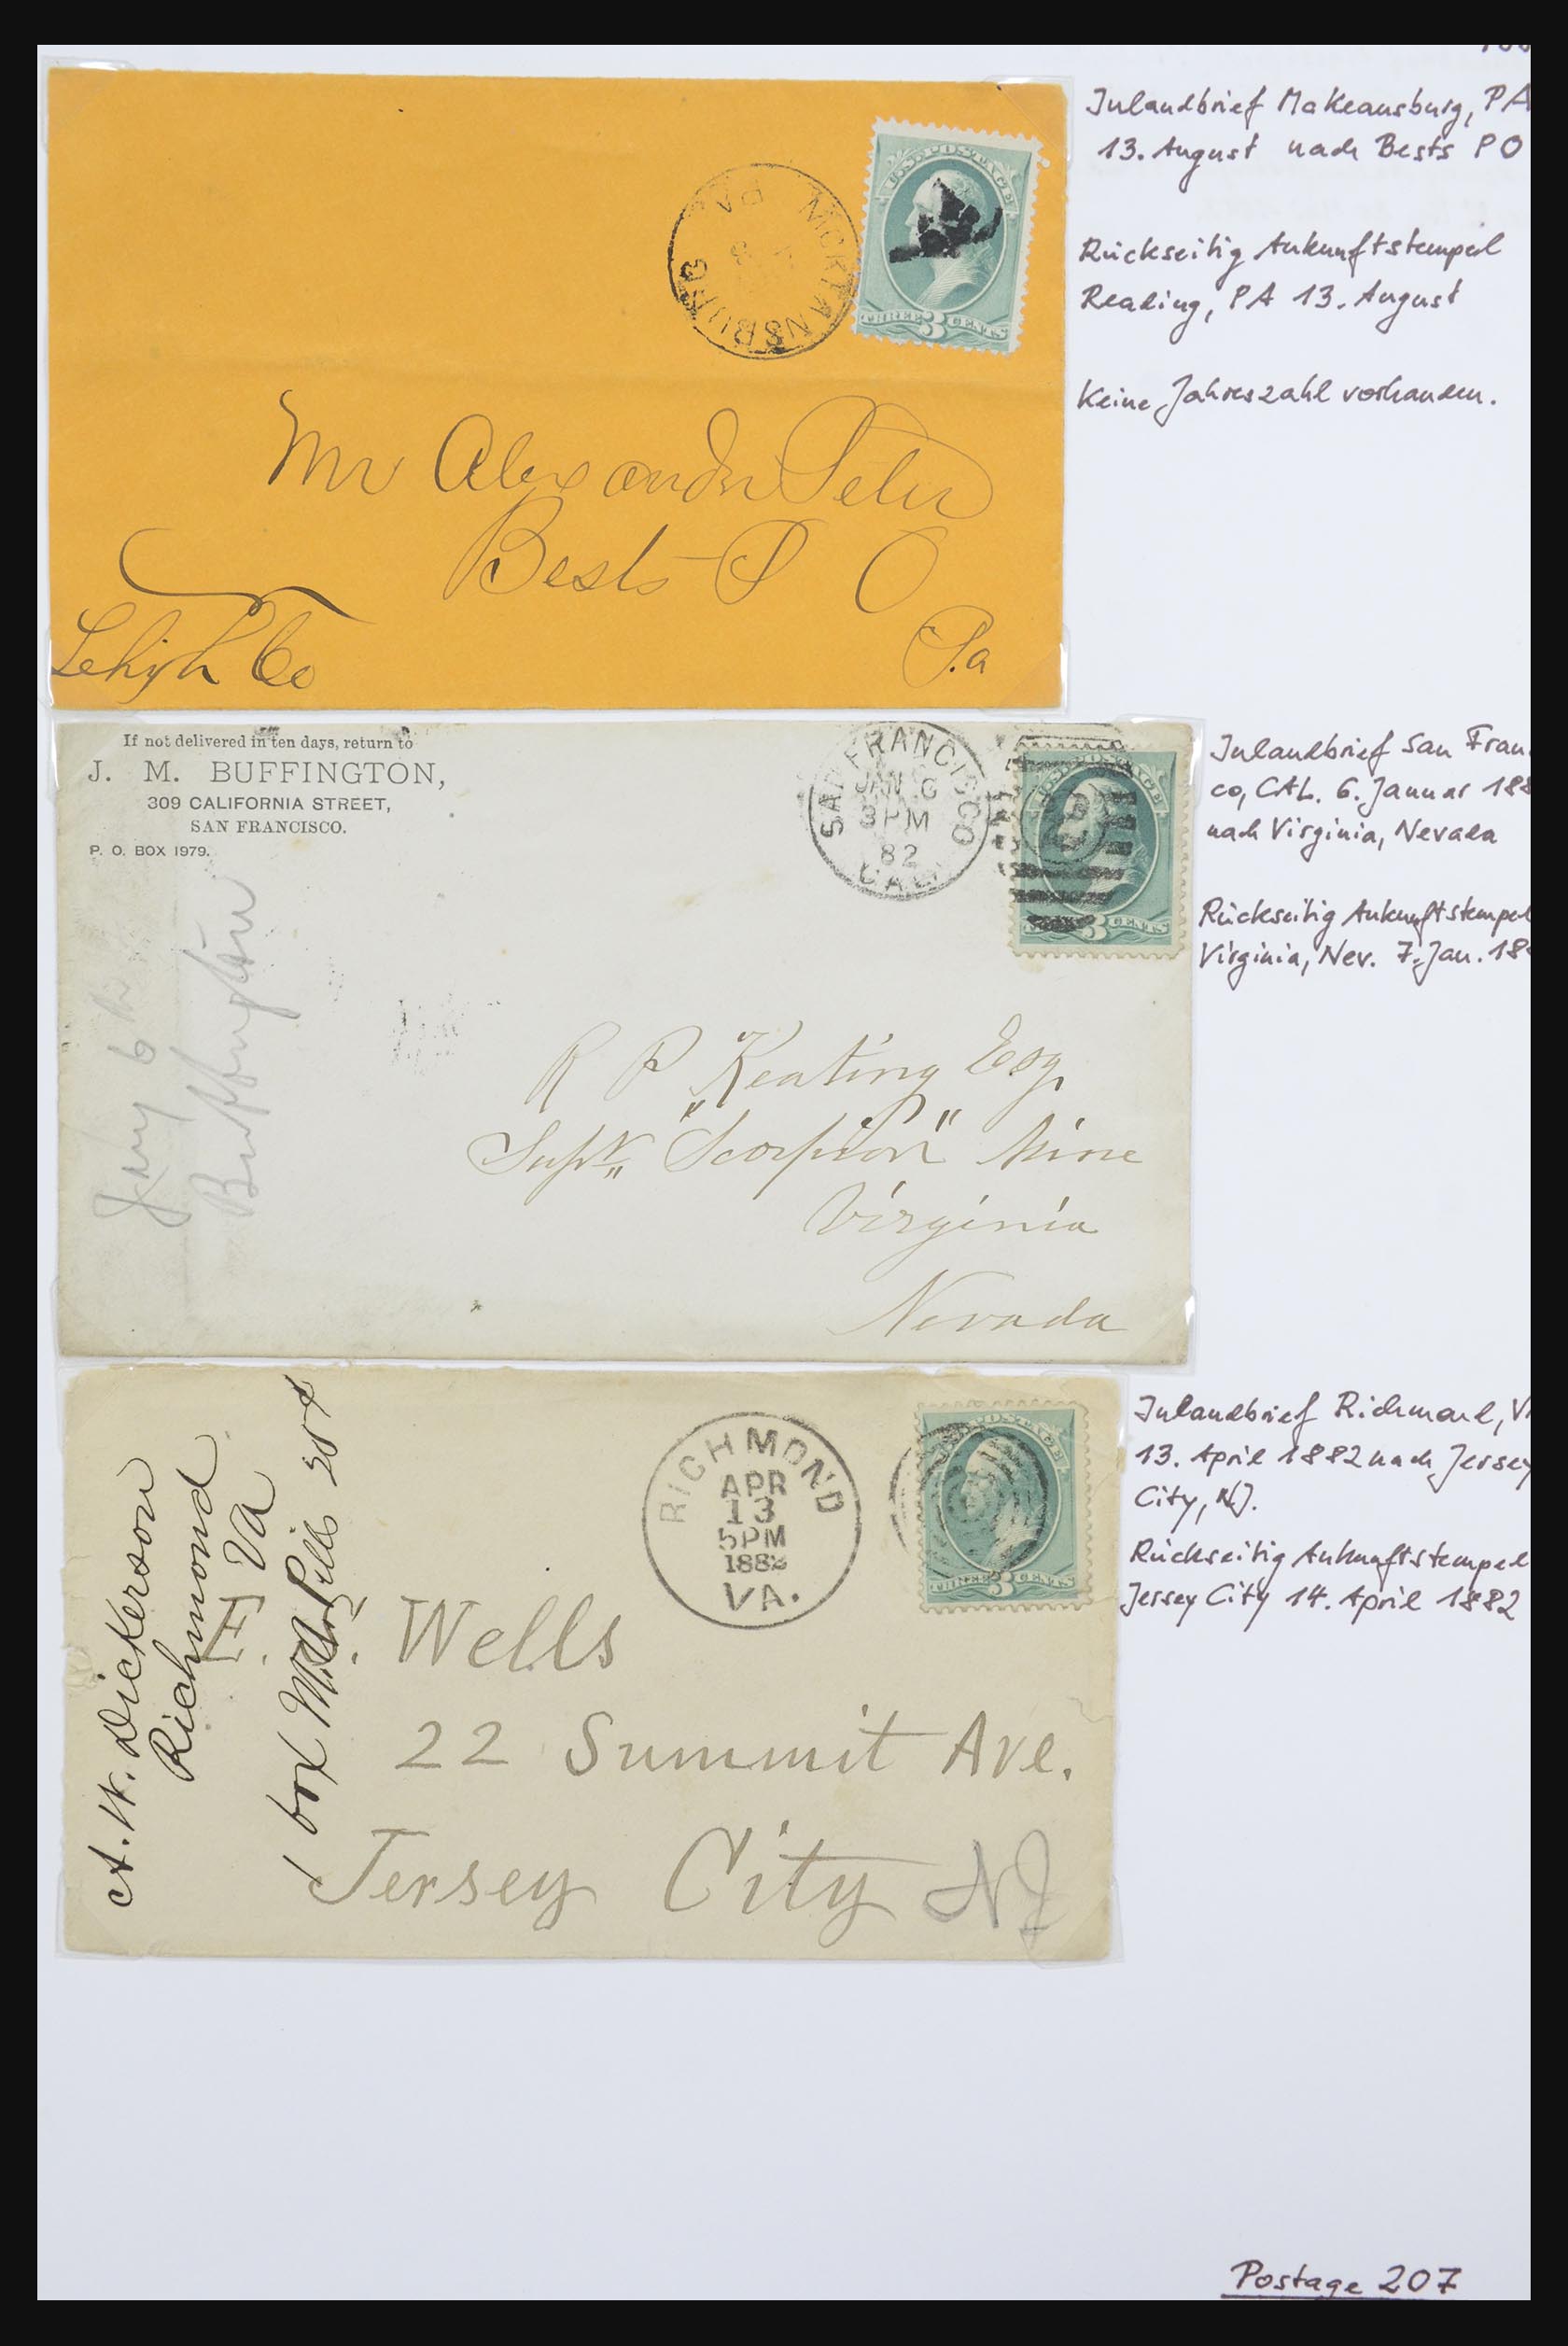 Inlandbrief Makeansburg, PA
13. August nach Bests PO
Rückseitig Ankunftstempel
Reading, PA 13. August
Keine Jahreszahl vorhanden.
MCKEANSBURG
PA
U.S. POSTAGE
THREE 3 CENTS
Mr Alexander Peter
Bests P O
Lehigh Co
Pa
If not delivered in ten days, return to
J. M. BUFFINGTON,
309 CALIFORNIA STREET,
SAN FRANCISCO.
P. O. BOX 1979.
SAN FRANCISCO
JAN 6
3 PM
82
CAL.
3 CENTS
Jany 6th
Buffington
R P Keating Esq.
Supt. "Scorpion" Mine
Virginia
Nevada
Inlandbrief San Fran
co, CAL. 6. Januar 188
nach Virginia, Nevada
Rückseitig Ankunftstempel
Virginia, Nev. 7. Jan. 18
A. W. Dickerson
Richmond
Va
1 box Pills
RICHMOND
APR
13
5 PM
1882
VA.
THREE 3 CENTS
Wells
22 Summit Ave.
Jersey City NJ
Inlandbrief Richmond, V
13. April 1882 nach Jersey
City, NJ.
Rückseitig Ankunftstempel
Jersey City 14. April 1882
Postage 207